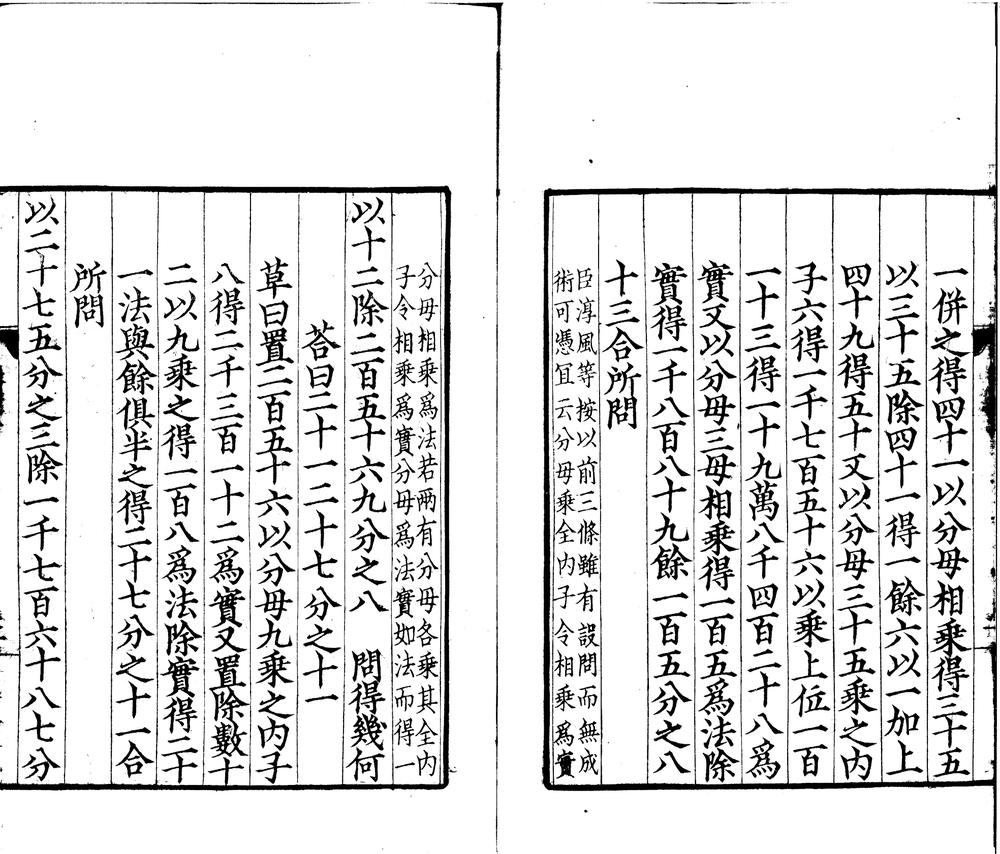 一併之得四十一以分母相乘得三十五
以三十五除四十一得一餘六以一加上
四十九得五十又以分母三十五乘之內
子六得一千七百五十六以乘上位一百
一十三得一十九萬八千四百二十八爲
實又以分母三母相乘得一百五爲法除
實得一千八百八十九餘一百五分之八
十三合所問
臣淳風等按以前三條雖有設問而無成
術可憑冝云分母乘全內子令相乘爲實
分母相乘爲法若兩有分母各乘其全內
子令相乘爲實分母爲法實如法而得一
以十二除二百五十六九分之八　問得幾何
荅曰二十一二十七分之十一
草曰置二百五十六以分母九乘之內子
八得二千三百一十二爲實又置除數十
二以九乘之得一百八爲法除實得二十
一法與餘俱半之得二十七分之十一合
所問
以二十七五分之三除一千七百六十八七分